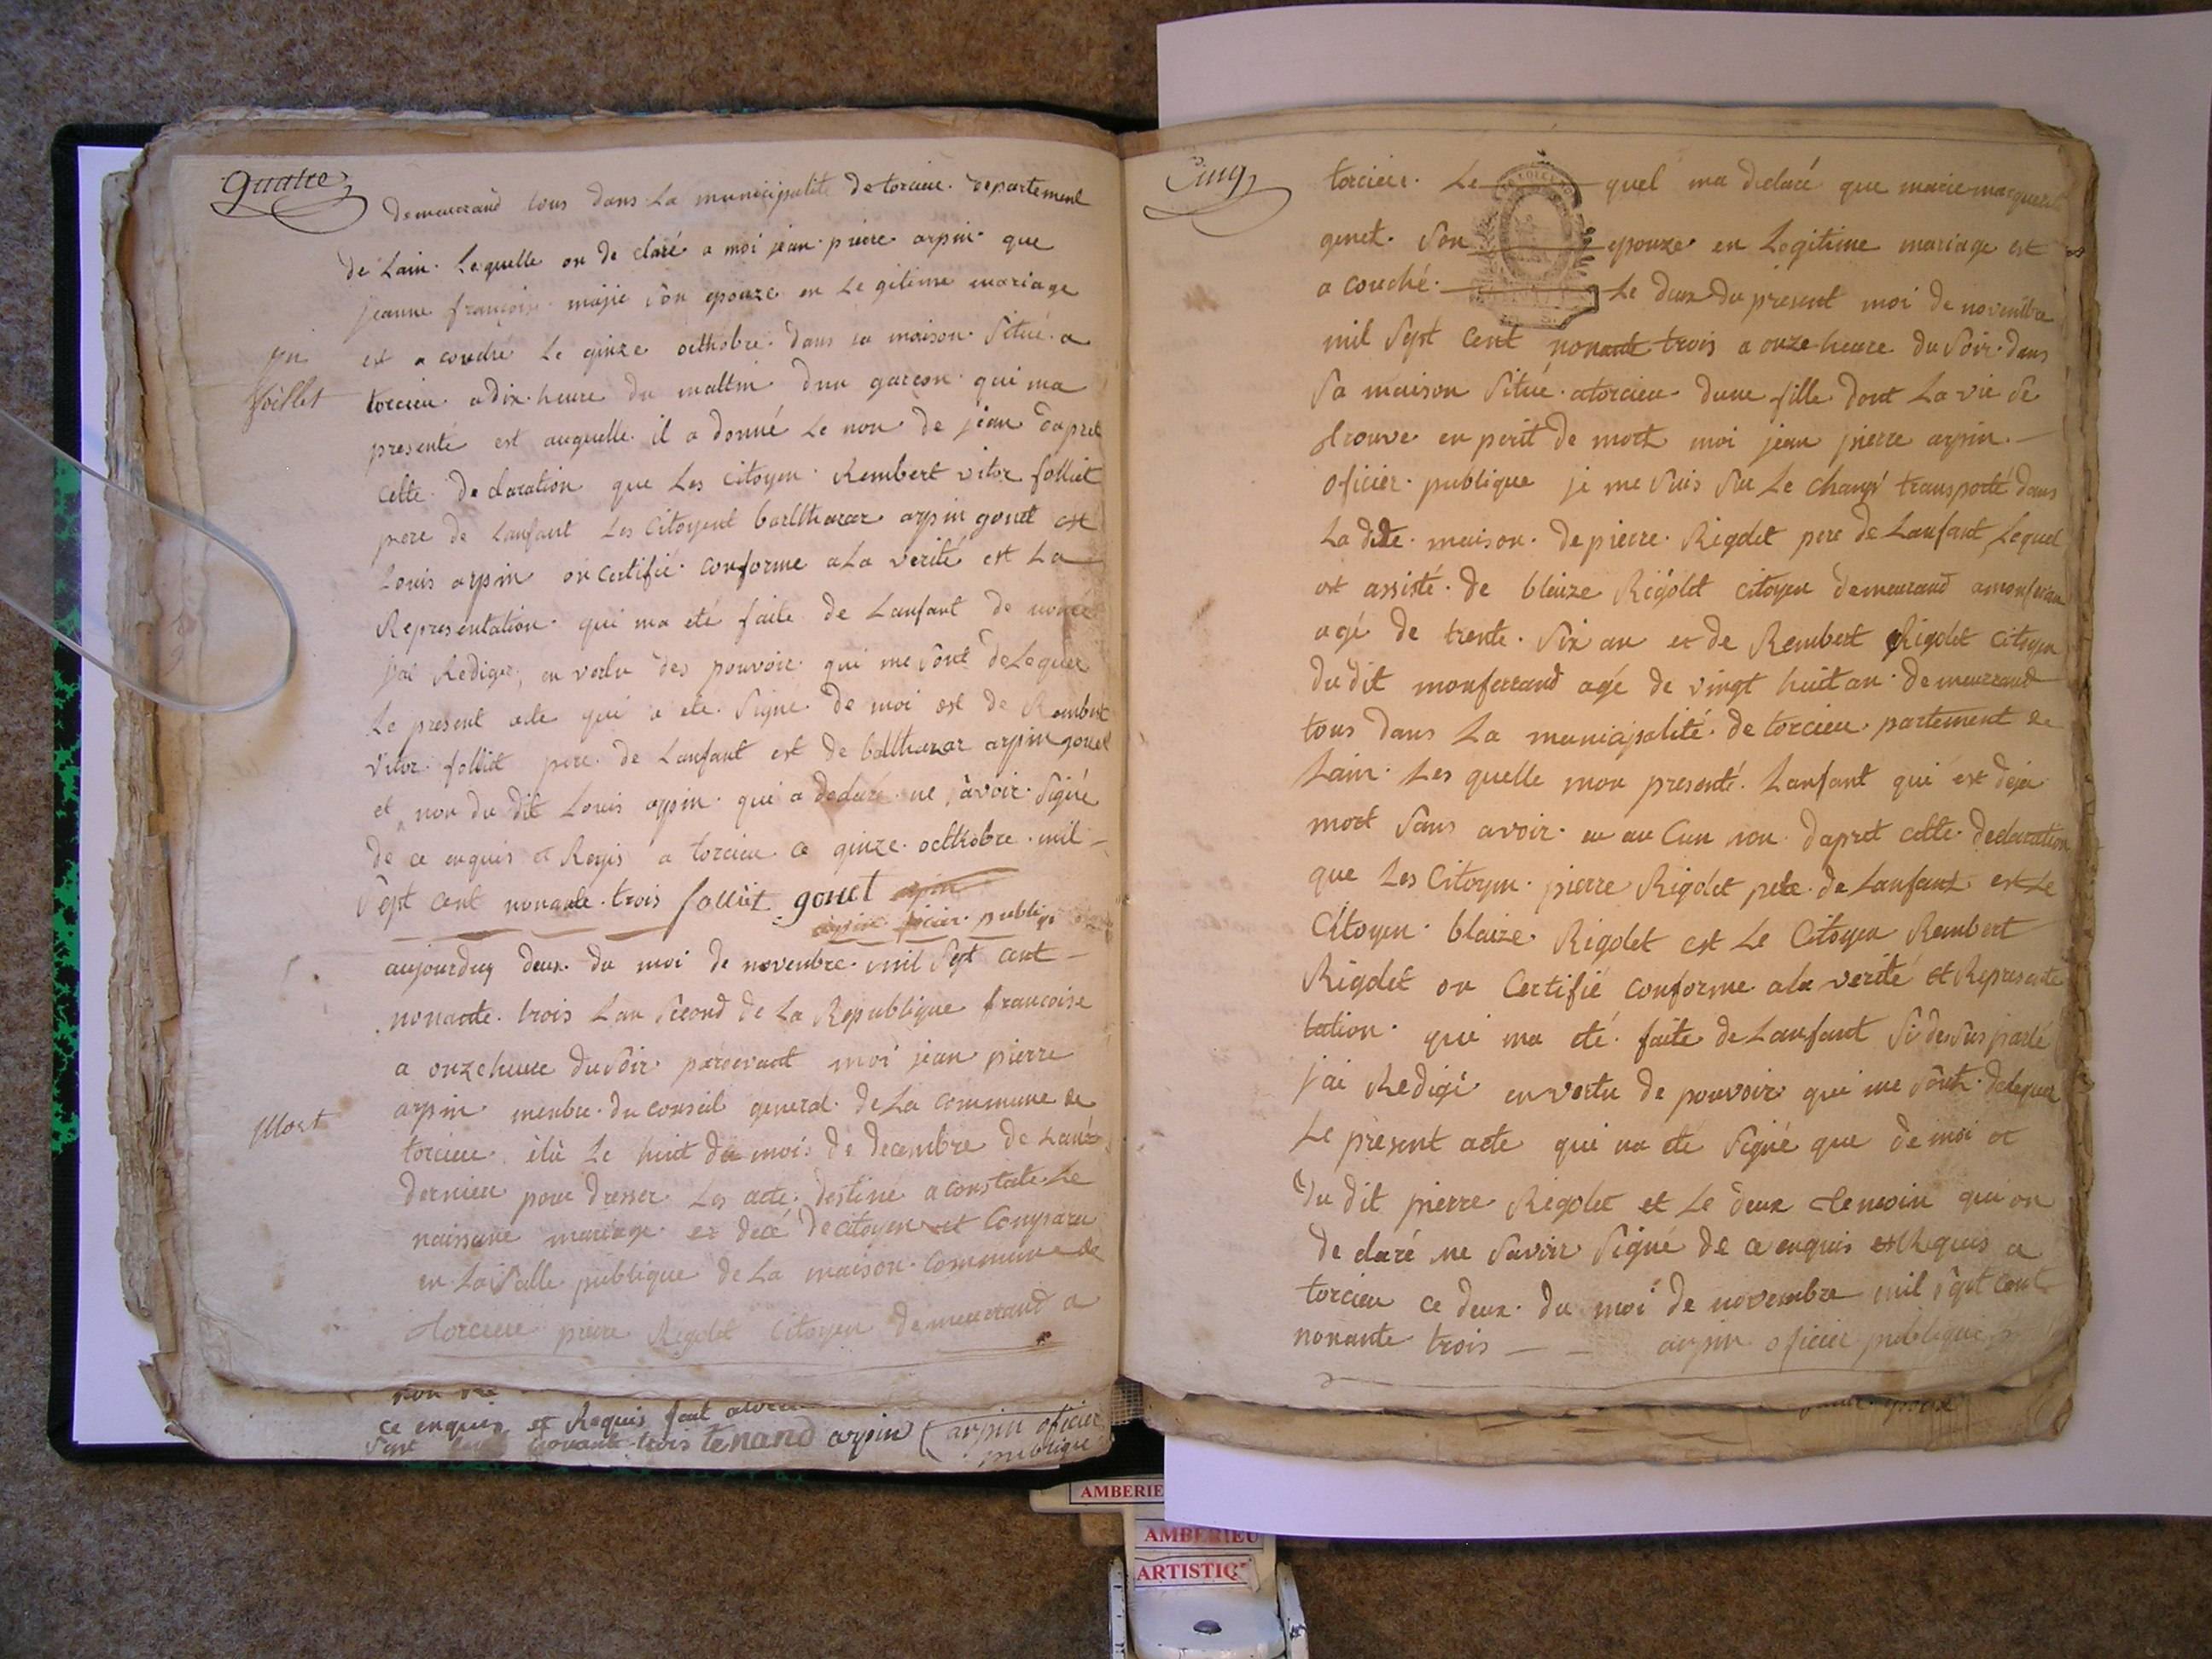 quatre
demeurand tous dans La municipalité de torcieu. departement
de Lain. Lesquelle on de claré a moi jean pierre arpin que
jeanne françoise majie son epouze en Le gitime mariage
est a couché Le ginze octhobre dans sa maison Situé a
folliet
torcieu a dix heure du mattin dun garcon qui ma
presenté est auquelle il a donné Le non de jean dapret
cette de claration que Les citoyen Rembert vitor folliet
pere de Lanfant Les Citoyent balthazar arpin gonet est
Louis arpin on certifié conforme a La verité est La
Representation qui ma eté faite de Lanfant de
jai Rediger, en vertu des pouvoir qui me sont deleguer
Le present acte qui a ete Signe de moi est de Rembert
vitor folliet pere de Lanfant est de balthazar arpin gonet
et non du dit Louis arpin qui a declaré ne savoir Signé
de ce enquis et Reqis a torcieu ce ginze octhobre mil
Sept cent nonante trois folliet gonet arpin
arpin oficier publiqe
aujourduy deux du moi de novembre mil Sept cent
nonante trois Lan Second de La Republique francoise
a onze heure du Soir pardevant moi jean pierre
arpin menbre du conseil general de La commune de
Mort
torcieu élu Le huit du mois de decembre de Lané
dernier pour dresser Les acte destiné a constate Le
naissance mariage et decé de citoyen et Comparu
en La Salle publique de La maison commune de
torcieu pierre Rigolet Citoyen demeurand a
ce enquis et Requis fait
nonante trois tenand arpin arpin oficier
publique
Cinq
torcieu. Le quel ma declaré que marie marguerit
genet. Son epouze en Legitime mariage est
a couché. Le deux du present moi de novembre
mil Sept Cent nonante trois a onze heure du Soir dans
Sa maison Situé a torcieu dune fille dont La vie Se
trouve en perit de mort moi jean pierre arpin.
oficier publique je me Suis Sur Le chanp transporté dans
La dite maison. de pierre Rigolet pere de Lanfant Lequel
est assisté de blaize Rigolet citoyen demeurand a monferan
agé de trente Six an et de Rembert Rigolet Citoyen
du dit monferrand agé de vingt huit an demeurrand
tous dans La municipalité de torcieu partement de
Lain Les quelle mon presenté Lanfant qui est deja
mort Sans avoir eu au Cun non dapret cette declaration
que Les Citoyen pierre Rigolet pere de Lanfant est Le
Citoyen blaize Rigolet est Le Citoyen Rembert
Rigolet on Certifié conforme a la verité et Represente
tation qui ma eté faite de Lanfant Si desus parlé
jai Redigé en vertu de pouvoir qui me Sont deleguer
Le present acte qui na eté Signé que de moi et
du dit pierre Rigolet et Le deux temoin qui on
de claré ne Savoir Signé de ce enquis et Requis a
torcieu ce deux du moi de novembre mil Sept cent
nonante trois arpin oficier publique
AMBERIE
AMBERIEU
ARTISTIQ